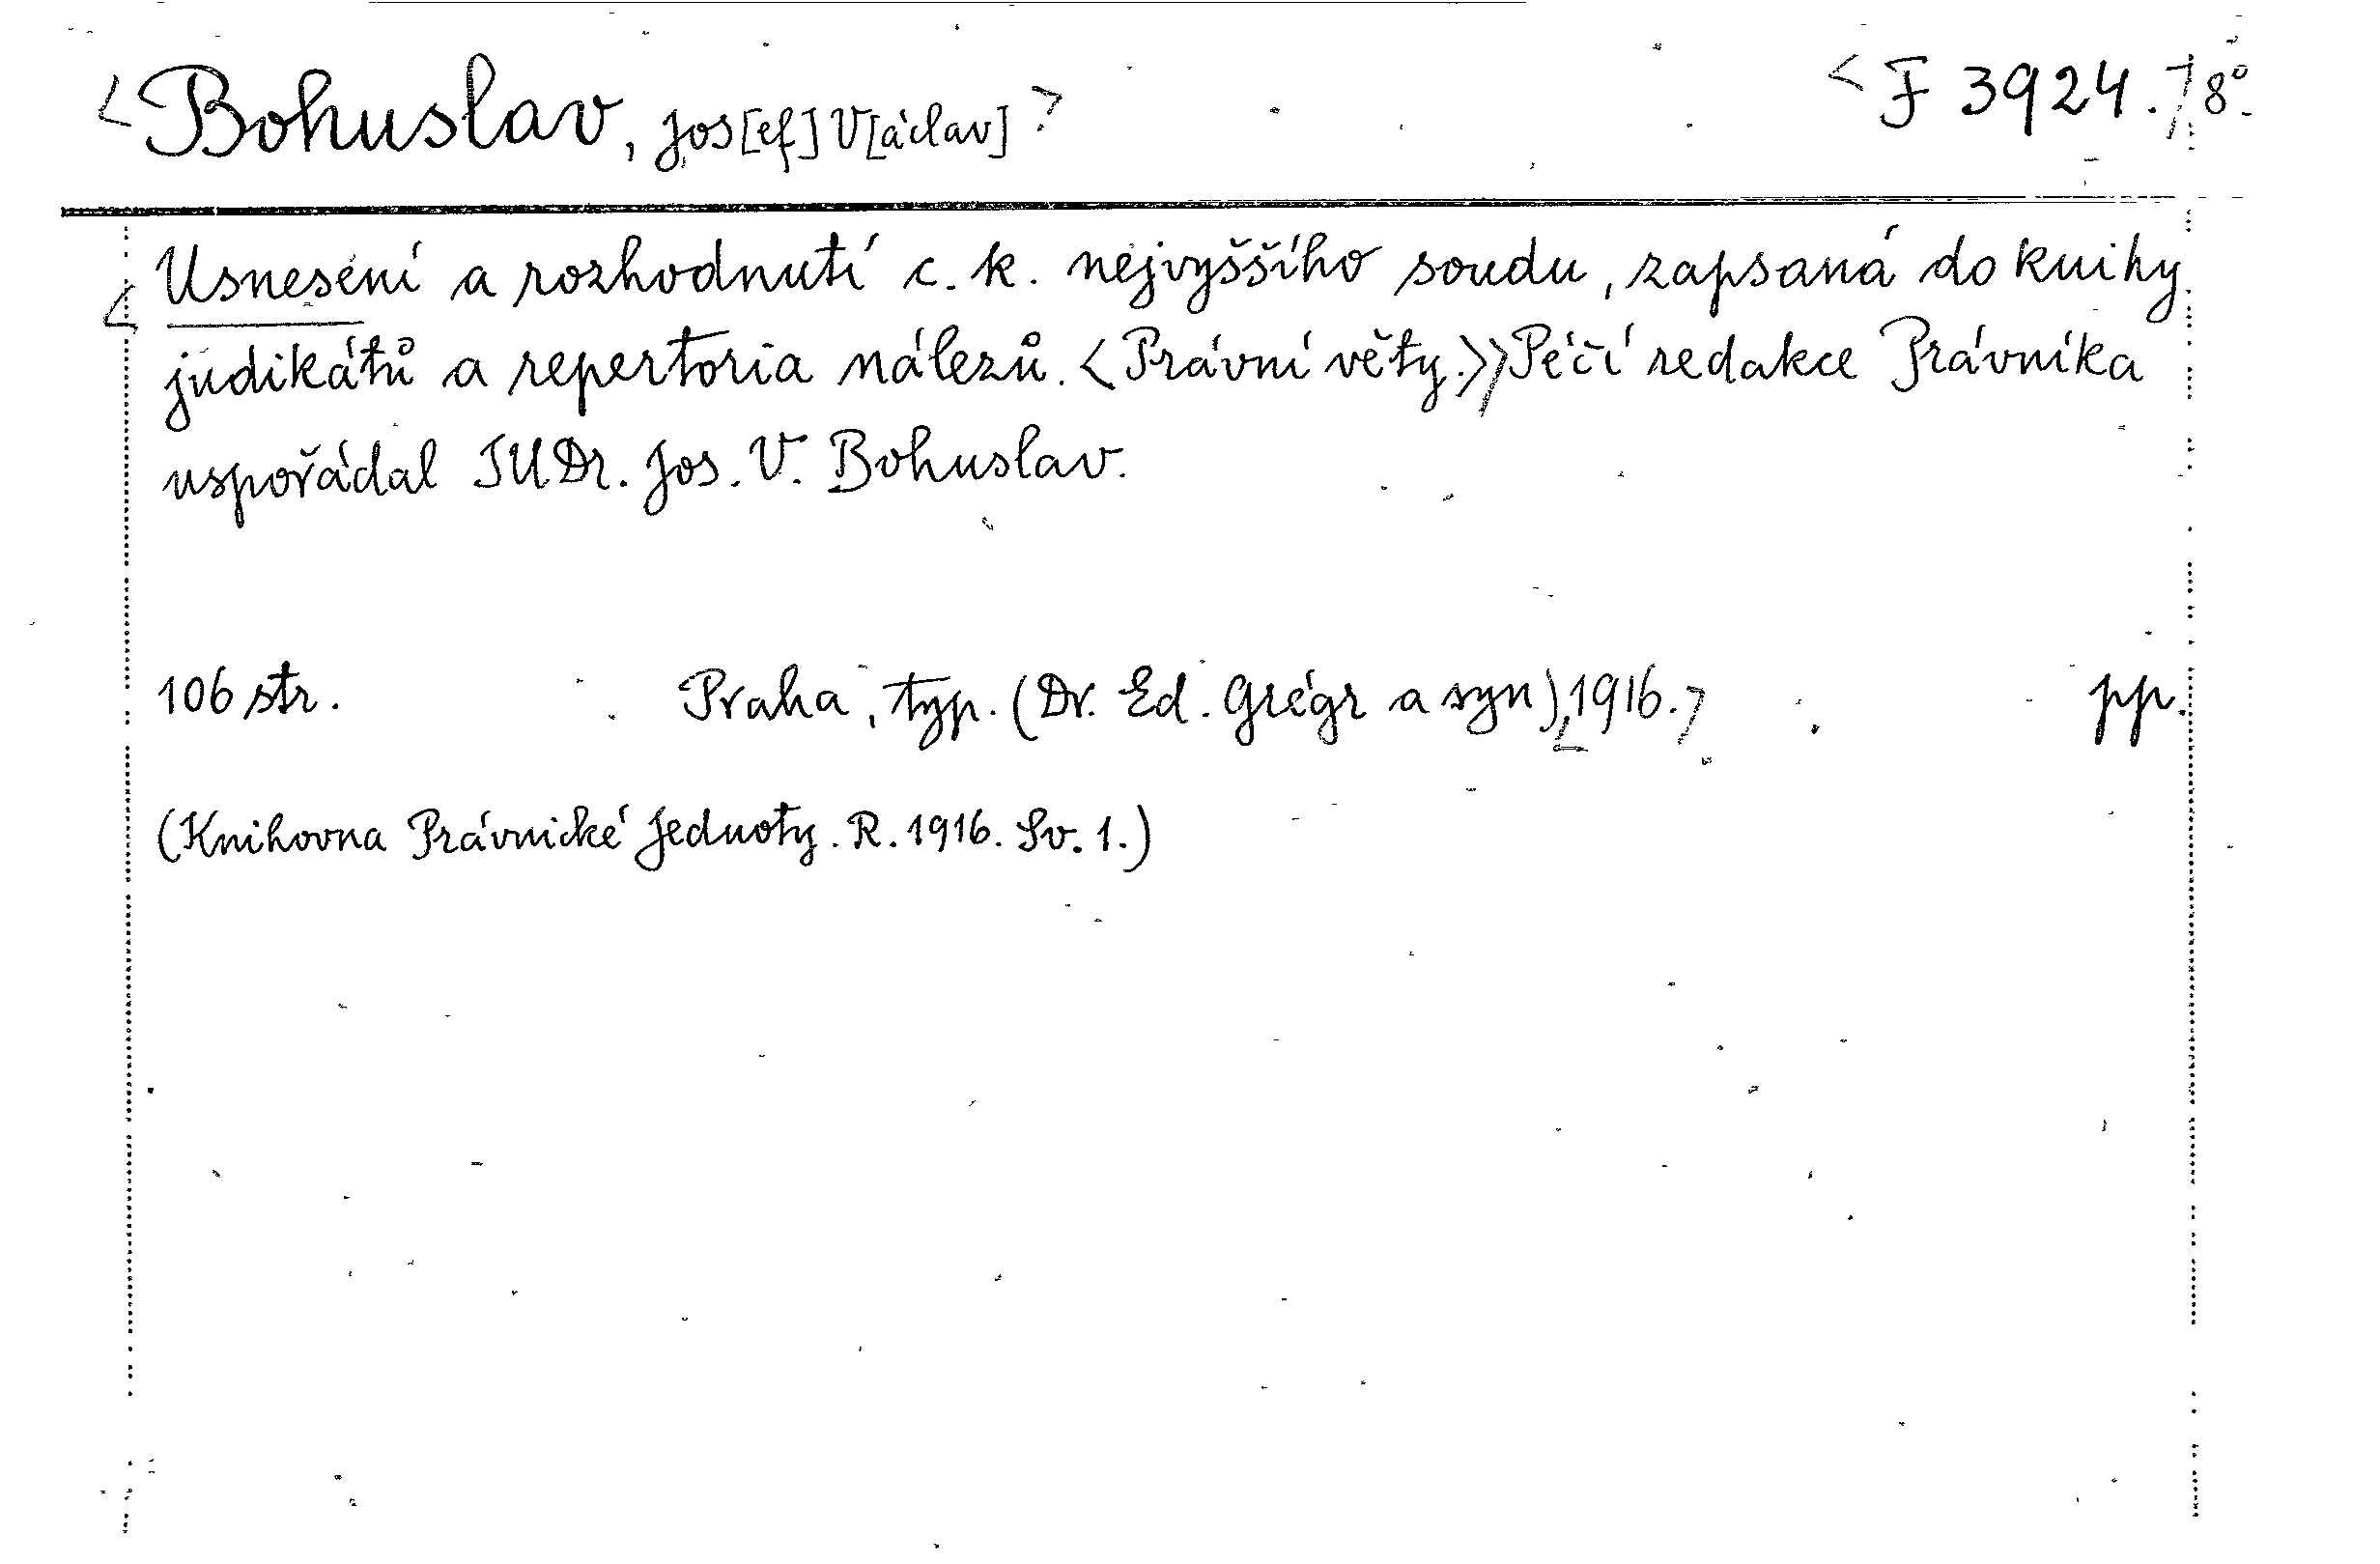 <Bohuslav, Jos[ef] V[áclav]> <F 3924.> 8°.
<Usnesení a rozhodnutí c. k. nejvyššího soudu, zapsaná do knihy
judikátů a repertoria nálezů. <Právní věty.>> Péčí redakce Právníka
uspořádal JUDr. Jos. V. Bohuslav.
106 str. Praha, typ. (Dr. Ed. Grégr a syn), <1916.> pp.
(Knihovna Právnické Jednoty. R. 1916. Sv. 1.)